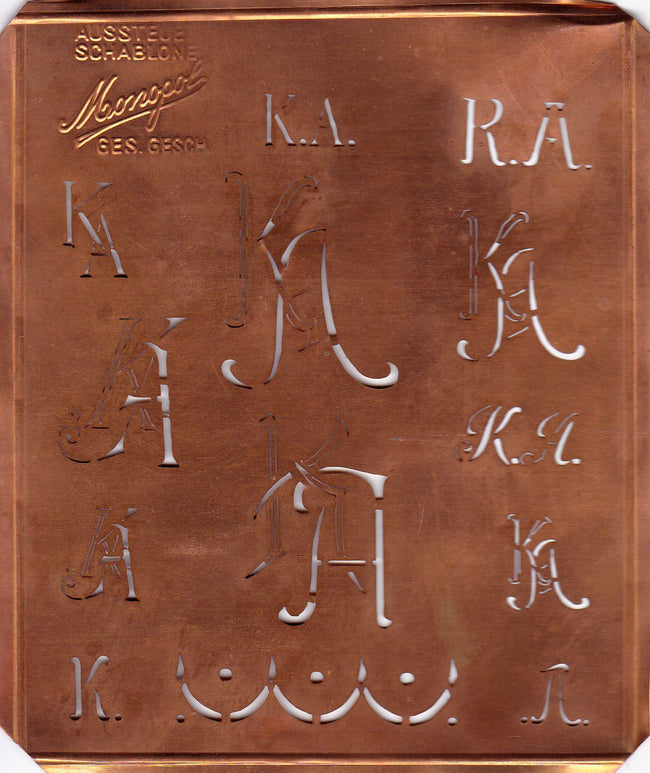 AUSSTEUER
SCHABLONE
Monopol
GES. GESCH
K.A.
K.Ä.
KA
KA
KA
KA
K.A.
KA
KA
KA
K.
.A.